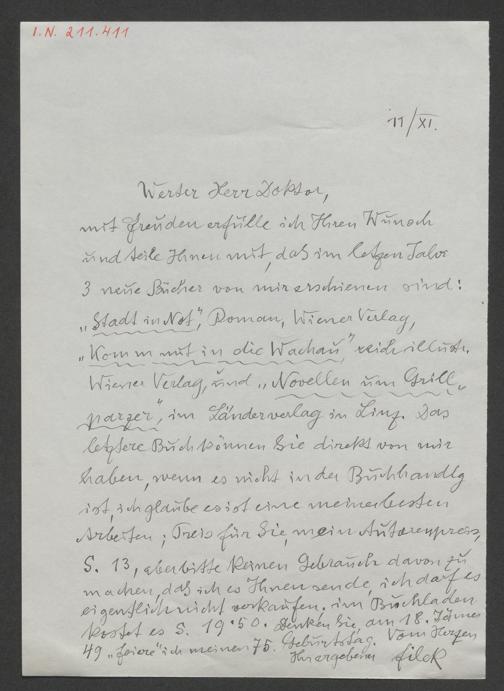 I.N. 211.411
11/XI.
Werter Herr Doktor,
mit Freuden erfülle ich Ihren Wunsch
und teile Ihnen mit, daß im letzen Jahr
3 neue Bücher von mir erschienen sind:
„Stadt in Not“, Roman, Wiener Verlag,
„Komm mit in die Wachau“ reich illustr.
Wiener Verlag, und „Novellen um Grill-
parzer“, im Länderverlag in Linz. Das
letztere Buch können Sie direkt von mir
haben, wenn es nicht in der Buchhandlg
ist, ich glaube es ist eine meiner besten
Arbeiten; Preis für Sie, mein Autorenpreis,
S. 13, aber bitte keinen Gebrauch davon zu
machen, daß ich es Ihnen sende, ich darf es
eigentlich nicht verkaufen, im Buchladen
kostet es S. 19.50. Denken Sie, am 18. Jänner
49 „feiere“ ich meinen 75. Geburtstag. Vom Herzen
Ihr ergebener Filek